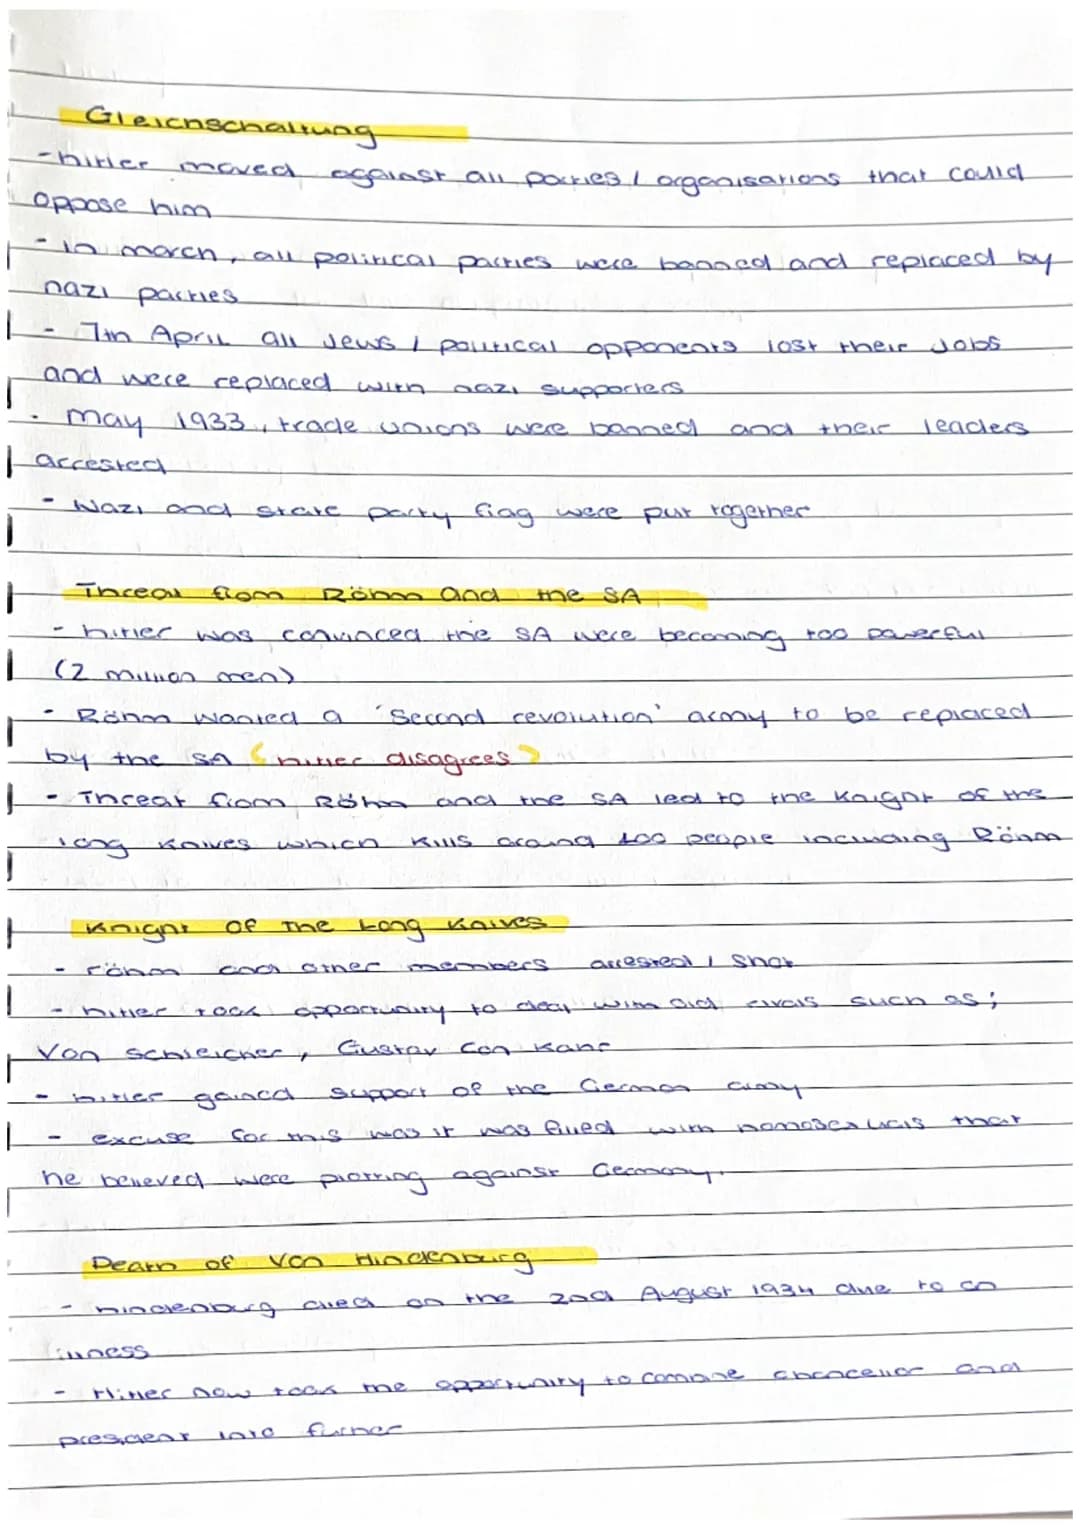 Gleichschaltung
- hitler moved against all parties / organisations that could
oppose him
- in march, all political parties were banned and replaced by
nazi parties
- 7th April all Jews / political opponents lost their Jobs
and were replaced with nazi supporters
- may 1933, trade unions were banned and their leaders
arrested
- Nazi and state party flag were put together
Threat from Röhm and the SA
- hitler was convinced the SA were becoming too powerful
(2 million men)
- Röhm wanted a 'second revolution' army to be replaced
by the SA (hitler disagrees)
- Threat from Röhm and the SA led to the Knight of the
long knives which kills around 400 people including Röhm
Knight of the Long Knives
- röhm and other members arrested / shot
- hitler took opportunity to deal with old rivals such as;
Von Schleicher, Gustav Con Kahr
- hitler gained support of the German army
- excuse for this was it was filled with homosexuals that
he believed were plotting against Germany.
Death of Von Hindenburg
- hindenburg died on the 2nd August 1934 due to an
illness
- Hitler now took the opportunity to combine chancellor and
president into furher